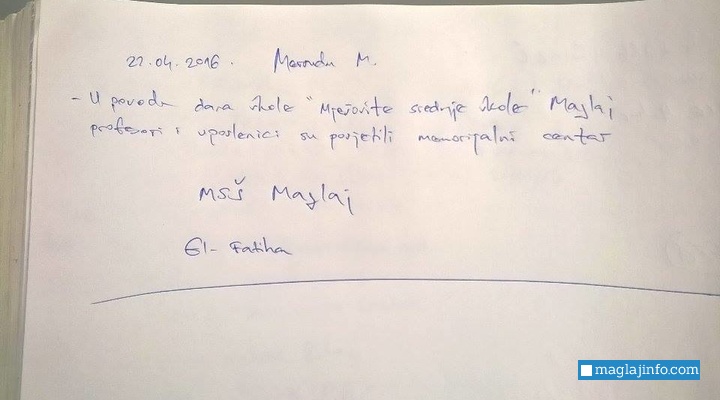 22.04.2016. M.
- U povodu dana škole "Mješovite srednje škole" Maglaj
profesori i uposlenici su posjetili memorijalni centar
MSŠ Maglaj
El-Fatiha
maglajinfo.com